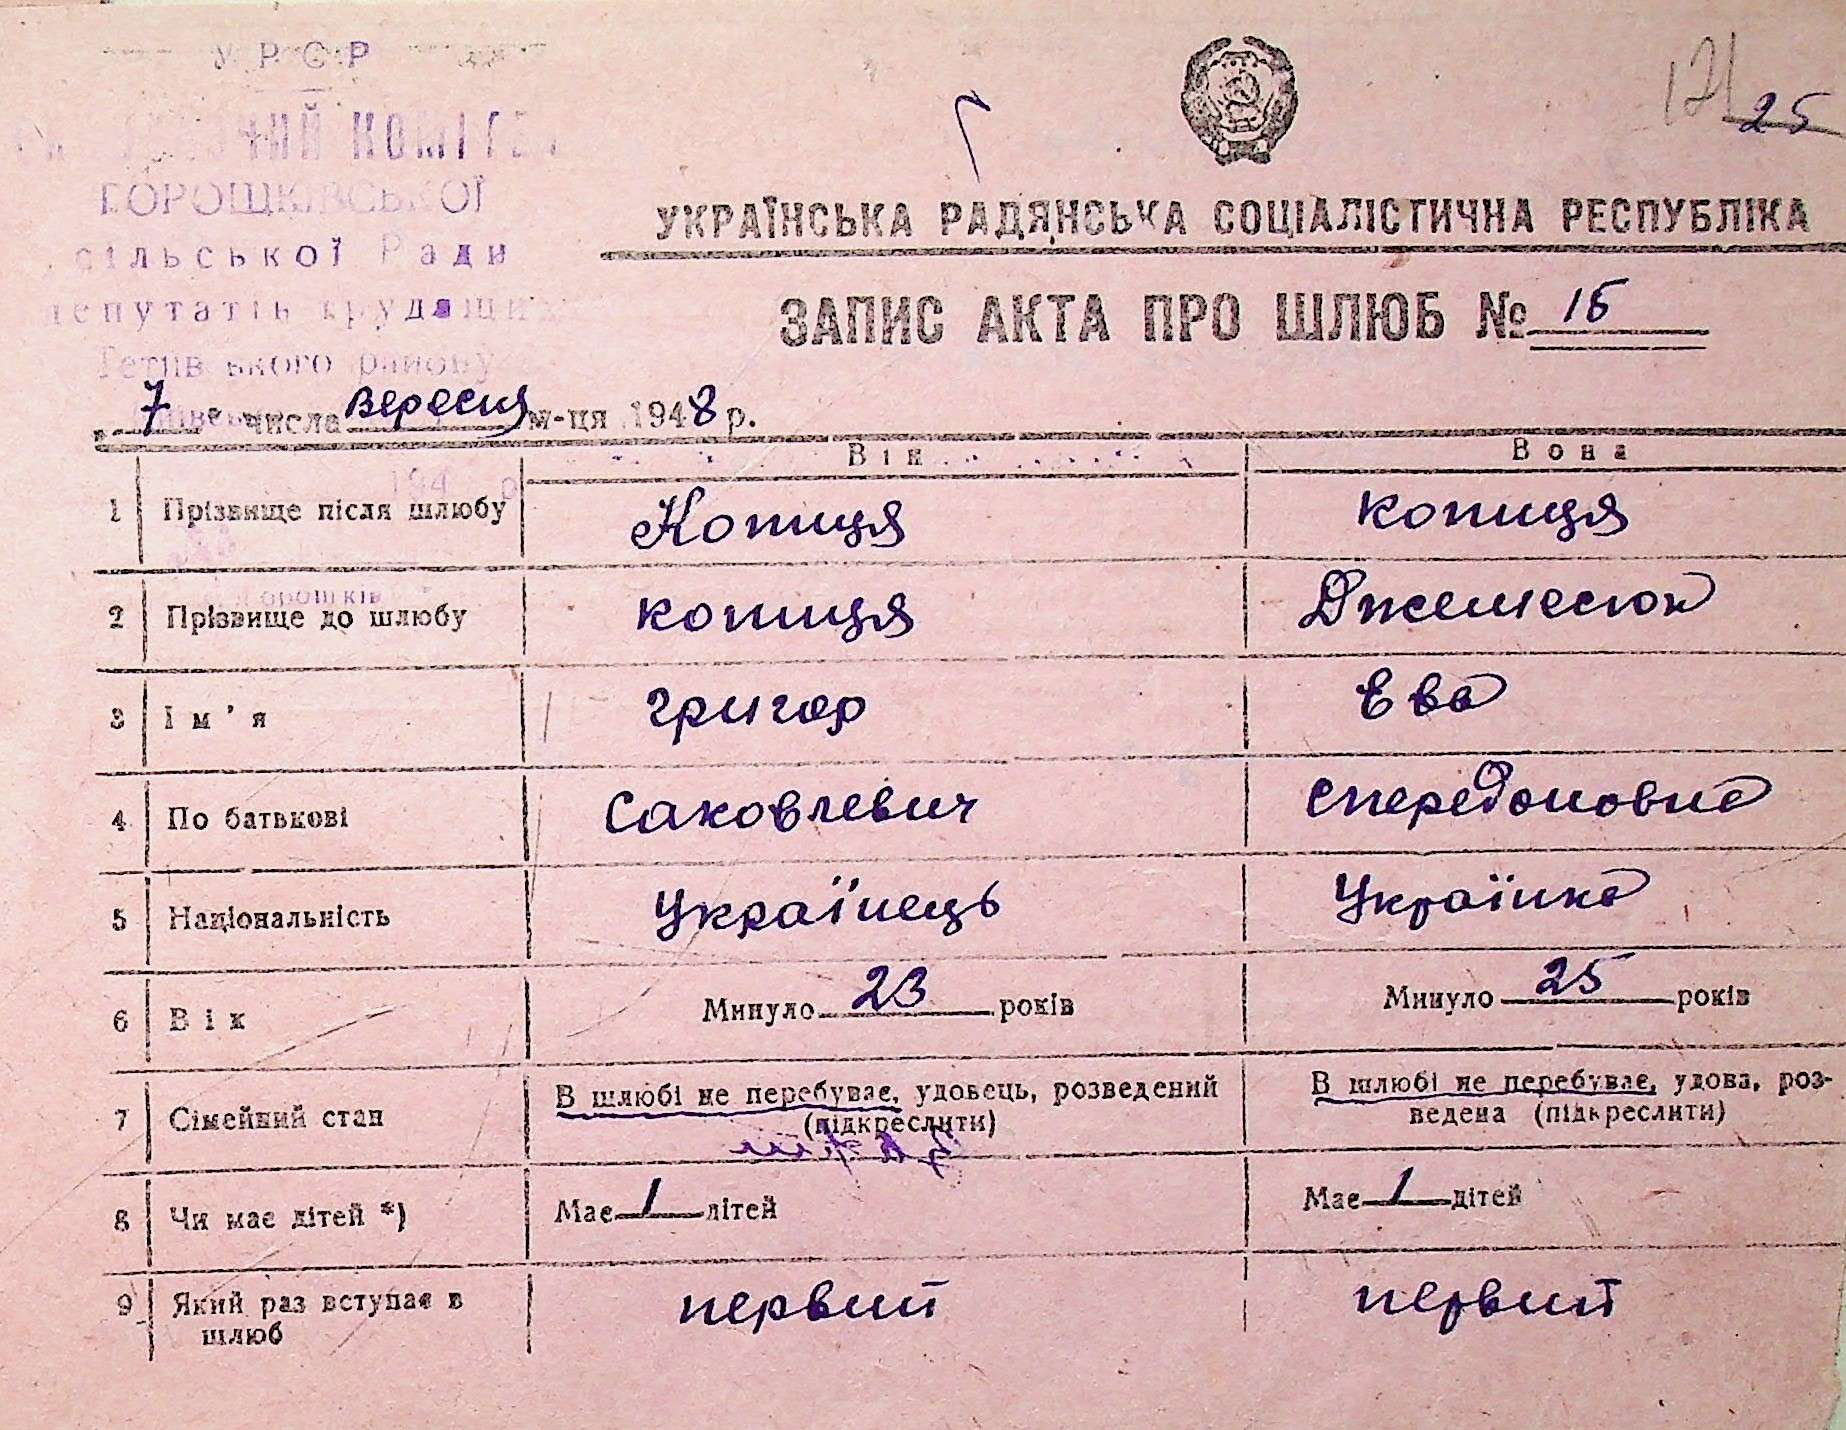 УРСР
КОМІТЕТ
ГОРОШКІВСЬКОЇ
сільської Ради
депутатів трудящих
Тетіївського району
121
25
УКРАЇНСЬКА РАДЯНСЬКА СОЦІАЛІСТИЧНА РЕСПУБЛІКА
ЗАПИС АКТА ПРО ШЛЮБ № 15
„7“ числа вересня м-ця 1948 р.
Він Вона
1 Прізвище після шлюбу Копиця копиця
2 Прізвище до шлюбу копиця
3 Ім'я Григор Ева
4 По батькові Саковлевич спередоновна
5 Національність Українець Українка
6 Вік Минуло 23 років Минуло 25 років
7 Сімейний стан В шлюбі не перебуває, удовець, розведений (підкреслити) В шлюбі не перебуває, удова, роз-
ведена (підкреслити)
8 Чи має дітей *) Має 1 дітей Має 1 дітей
9 Який раз вступає в шлюб первий первий